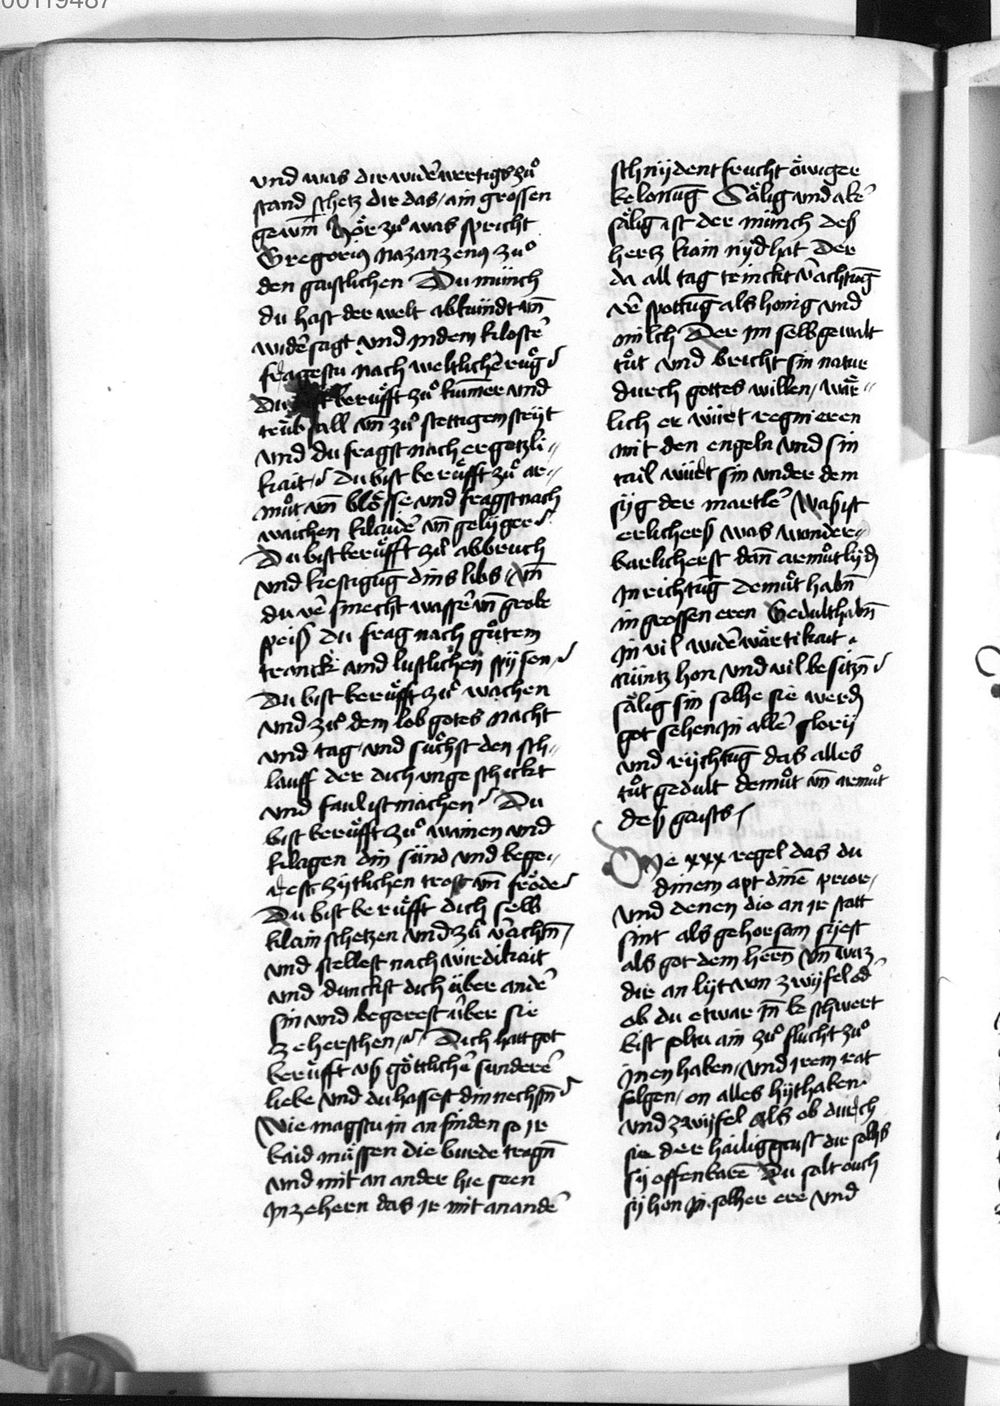 00119487
vnd was dir widẽwertigs zuͦ
stand schetz dir das / ain grossen
gewin̄ Hoͤr zuͦ was spricht
Gregoriꝰ nazanzenꝰ zuͦ
den gaistlichen Du münch
du hast der welt abkündt vn̄
widẽsagt vnd in dem klostẽ
fragestu nach weltlichẽ ruͦg
Du bist beruͤfft zuͦ kum̄er vnd
truͤbsall vn̄ zuͦ stettigem strijt
vnd du fragst nach ergetzli⸗
kait / du bist beruͤfft zuͦ ar⸗
muͦt vn̄ bloͤsse vnd fragst nach
waichen klaidẽ vn̄ gelijger
Du bist beruͤfft zuͦ abbruch
vnd kestigūg dins libs / vn̄
du vẽsmechst wassẽ vn̄ grobe
speiß du frag nach guͦtem
tranck vnd lustlichen spijsen
Du bist beruͤfft zuͦ wachen
vnd zuͦ dem lob gotes nacht
vnd tag / vnd suͦchst den sch⸗
lauff der dich vngeschickt
vnd faul ist machen Du
bist beruͤfft zuͦ wainen vnd
klagen din sünd vnd bege⸗
rest zijtlichen trost vn̄ froͤde
Du bist beruͤfft dich selb
klain schetzen vnd zuͦ vẽachtn̄
vnd stellest nach wirdikait
vnd dunckst dich über andẽ
sin vnd begerest über sie
ze herschen / Dich hatt got
beruͤfft vß goͤttlichẽ sunderẽ
liebe vnd du hassest din nechstn̄
Wie magstu in an finden so ir
baid müssen die burde tragn̄
vnd mit an ander hie seen
in zehern das ir mit an andẽ
schnijdent frucht oͤwiger
belonūg Saͤlig vnd abẽ
saͤlig ist der münch deß
hertz kain nijd hat der
da all tag trinckt vẽachtūg
vẽspottūg als honig vnd
milch Der im selb gewalt
tuͦt vnd bricht sin natur
durch gottes willen / waͤr⸗
lich er würt regnieren
mit den engeln vnd sin
tail würt sin vnder dem
sijg der martlẽ Waß ist
erlicherß was wunder⸗
barlicherst dan̄ armuͦt lijdn
in richtūg demuͦt habn̄
in grossen eren Gedult habn̄
in vil widẽwaͤrtikait
nüntz hon vnd vil besitzn̄
saͤlig sin solhe sie werdn
got sehen in allẽ glorij
vnd rijchtūg das alles
tuͦt gedult demuͦt vn̄ armuͦt
deß gaists
Die xxx regel das du
dinem apt dinē prior /
vnd denen die an ir statt
sint als gehorsam sijest
als got dem hern̄ vn̄ waz
die an lijt von zwijfel odẽ
ob du etwar in̄ beschwert
bist soltu ain zuͦ flucht zuͦ
inen haben / vnd irem rat
folgen / on alles hijthaben
vnd zwijfel als ob durch
sie der hailig gaist dir solhs
sij offenbarē Du solt ouch
sij hon in solher ere vnd